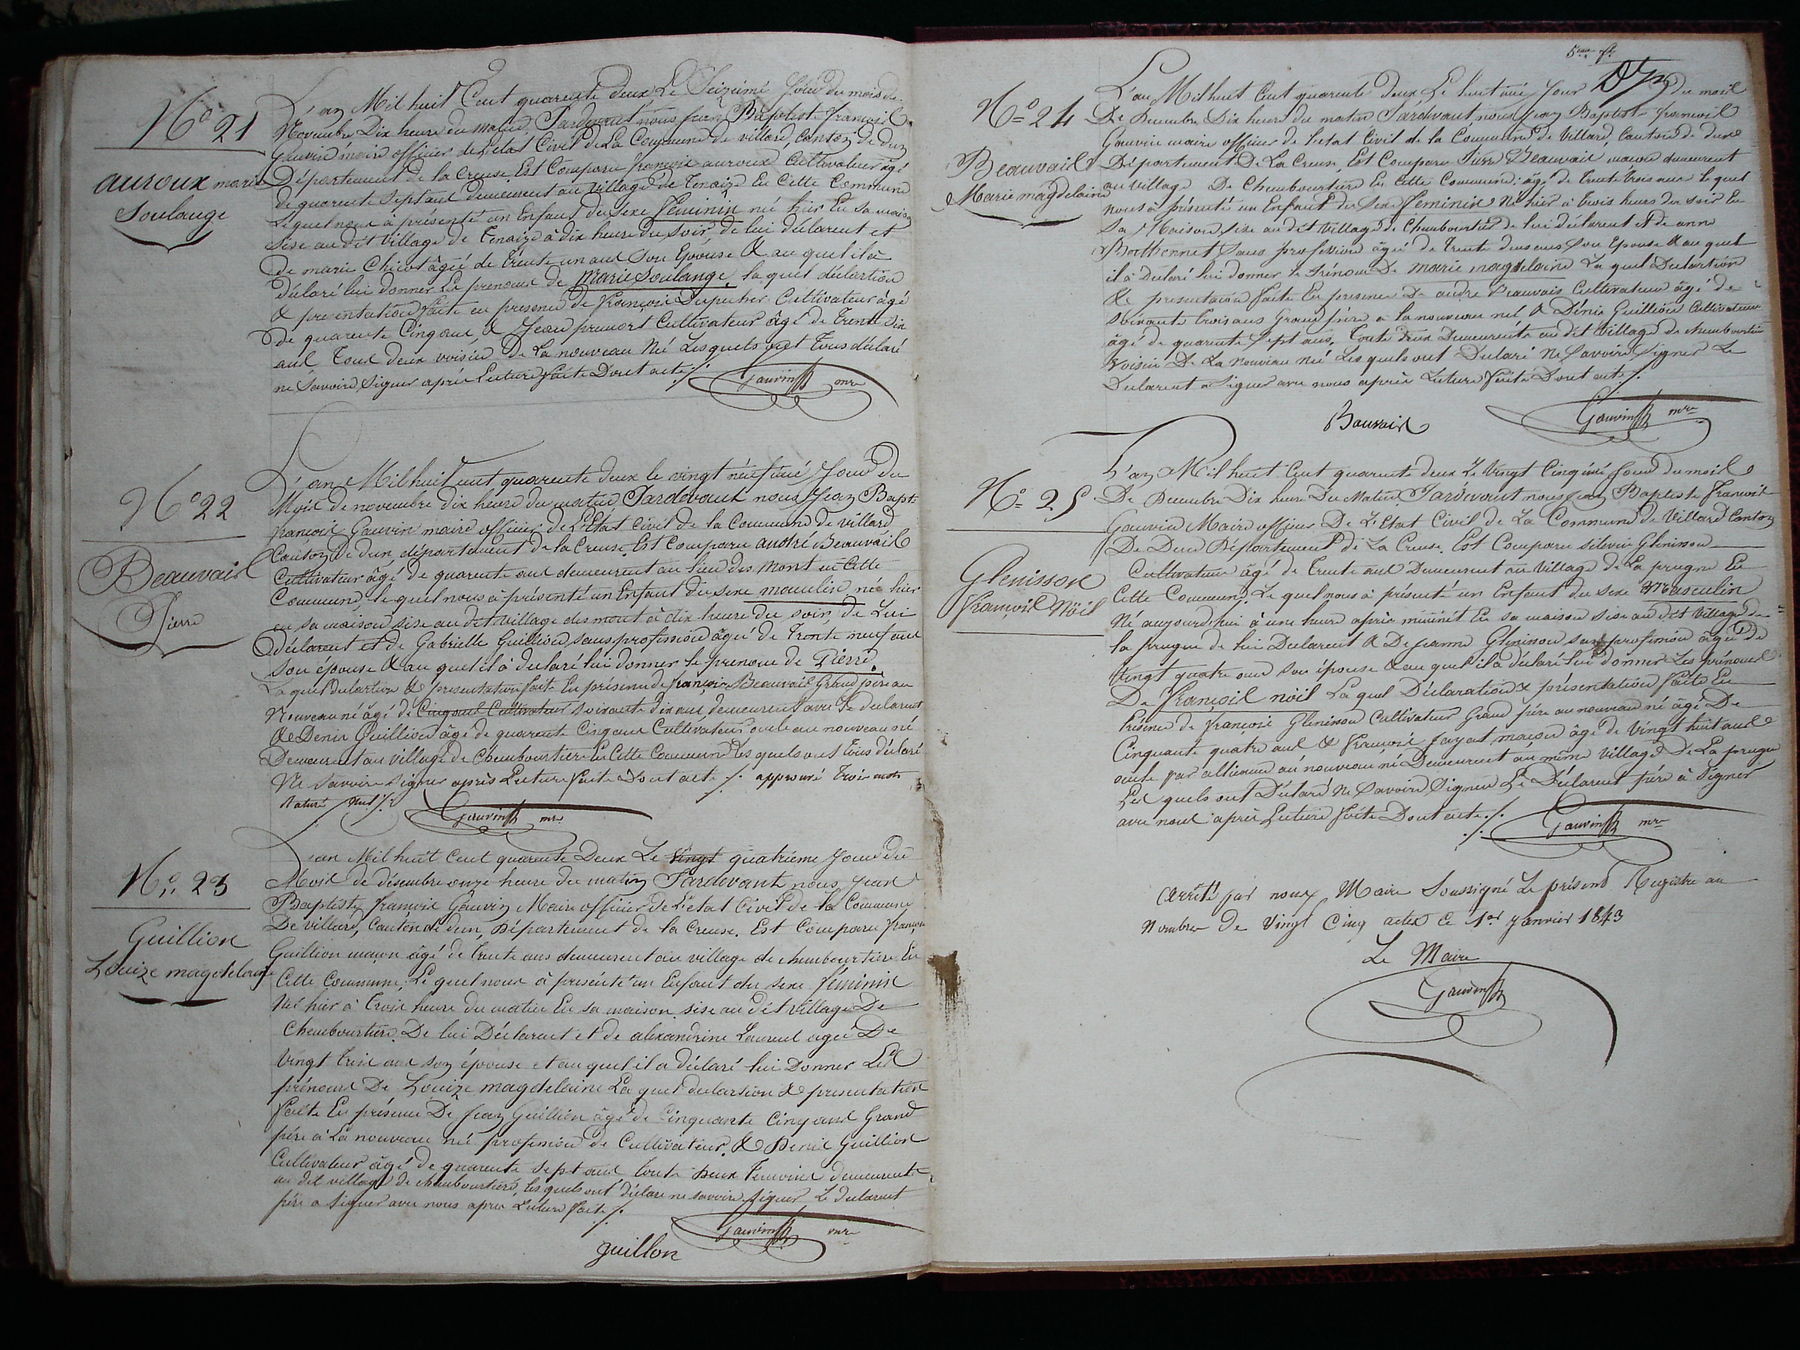 N° 21
auroux marie
Soulange
L'an Mil huit Cent quarente deux Le Seizieme Jour du mois de
Novembre Dix heure du matin, Pardevant nous jean Baptiste françois
Gauvin maire officier de l'etat Civil de la Commune de villard, Canton de dun
Département de la Creuse. Est Comparu françois auroux Cultivateur âgé
de quarente Sept ans demeurent au village de Tenaize En Cette Commune
Lequel nous à présenté un Enfant du Sexe féminin né hier En sa maison
Sise au dit village de Tenaize à dix heure du Soir, de lui déclarent et
de marie Chicot âgée de trente un ans Son Epouse & au quel il à
déclaré lui donner le prenoms de Marie Soulange, la quel déclartion
& presentation faite en presence de françois Dupecher Cultivateur âgé
de quarente Cinq ans, & Jean prunort Cultivateur âgé de Trente dix
ans Tous deux voisin de la nouveau Né Lesquels ont Tous déclaré
ne Savoire Signer après Luture faite Dont acte ./.
Gauvin mre
N° 22
Beauvais
Pierre
L'an Mil huit cent quarente deux le vingt neufieme Jour du
Mois de novembre dix heure du matin, Pardevant nous Jean Bapt.
françois Gauvin maire officier de L'Etat Civil de la Commune de villard
Canton de dun département de la Creuse, Est Comparu andré Beauvais
Cultivateur âgé de quarente ans demeurent au lieu des Mont en Cette
Commune, le quel nous à présenté un Enfant du sexe masculin né hier
en sa maison sise au dit village des mont à dix heure du soir, de Lui
déclarent et de Gabrielle Guillion sans profession âgée de Trente neuf ans
son épouse & au quel il à declaré lui donner le prenom de Pierre.
La quel declartion & presentation faite En présence de françois Beauvais Grand père au
Nouveau né âgé de Cinq ans Cultivateur soixante dix ans demeurent avec le declarent
& Denis Guillion âgé de quarente Cinq ans Cultivateur oncle au nouveau né
Demeurent au village de Chambourtière En Cette Commune Les quels ont Tous déclaré
Ne Savoire Signer après Luture faite Dont acte ./. approuvé Trois mots
Raturé nul ./.
Gauvin mre
N° 23
Guillion
Louize magdelaine
L'an Mil huit Cent quarente Deux Le vingt quatrieme Jour du
Mois de désembre onze heure du matin Pardevant nous, Jean
Baptiste françois Gauvin Maire officier de L'etat Civil de la Commune
De villard, Canton de dun, Département de la Creuse. Est Comparu françois
Guillion maçon âgé de trente ans demeurent au village de chambourtière En
Cette Commune, Le quel nous à présenté un Enfant du sexe féminin
Né hier à Trois heure du matin En sa maison sise au dit village De
Chambourtière De lui Déclarent et de alexandrine Laurent agée De
vingt trois ans son épouse et au quel il a déclaré lui Donner Les
prénoms De Louize magdelaine La quel declarsion & presentation
faite En présence De Jean Guillion âgé de Cinquante Cinq ans Grand
père à La nouveau né profession de Cultivateur, & Denis Guillion
Cultivateur âgé de quarente sept ans toute Deux Temoins demeurent
au dit village de chambourtière, Les quels ont déclaré ne savoire signer, Le declarent
père a Signer avec nous apres Luture faite ./.
Gauvin mre
guillon
5me ft
N° 24
Beauvais
Marie magdelaine
L'an Mil huit Cent quarente Deux Le huitieme Jour du mois
De Decembre Dix heure du matin Pardevant nous Jean Baptiste françois
Gauvin maire officier de l'etat Civil de la Commune de Villard, Canton de dun
Département de La Creuse, Est Comparu Pierre Beauvais maçon demeurent
au village De Chambourtière En Cette Commune âgé de trente trois ans le quel
nous à présenté un Enfant du Sexe féminin Né hier à trois heure du soir En
sa Maison sise au dit village de Chambourtière de lui déclarent et de anne
Bathonnet sans profession âgée de Trente deux ans Son Epouse & au quel
il à Déclaré lui donner le Prénom De marie magdelaine La quel Declartion
& presentation faite En presence De andre Beauvais Cultivateur âgé de
soixante trois ans Grand père a la nouveau né & Dénis Guillion Cultivateur
âgé de quarente Sept ans, Toute Deux Demeurents au dit village de chambourtière
voisin De La Nouveau Né Les quels ont Declaré Ne Savoire Signer Le
Declarent a Signer avec nous après Luture faite Dont acte ./.
Bauvais
Gauvin mre
N° 25
Glenisson
françois Nöil
L'an Mil huit Cent quarente deux Le Vingt Cinquieme Jour du mois
De Decembre Dix heure Du Matin Pardevant nous Jean Baptiste françois
Gauvin Maire officier De L'Etat Civil de La Commune de Villard Canton
De Dun Département de La Creuse, Est Comparu silvain Glenisson
Cultivateur âgé de trente ans Demeurent au village de La prugne En
Cette Commune, Le quel nous à présenté un Enfant du sexe Masculin
Né aujourd'hui à une heure après minuit En sa maison sise au dit village de
la prugne de lui Declarent & De jeanne Glenisson sans profession âgée De
vingt quatre ans son épouse & au quel il à déclaré lui donner Les prénoms
De françois nöil La quel Déclaration & présentation faite En
présence de françois Glenisson Cultivateur Grand père au nouveau né âgé De
Cinquante quatre ans & françois fayat maçon âgé de vingt huit ans
oncle par alliance au nouveau né Demeurent au même village De La prugne
Les quels ont Déclaré Ne Savoire Signer Le Déclarent père à Signer
avec nous après Luture faite Dont acte ./.
Gauvin mre
Arrêté par nous Maire Soussigné Le présent Registre au
Nombre De Vingt Cinq actes ce 1er Janvier 1843
Le Maire
Gauvin